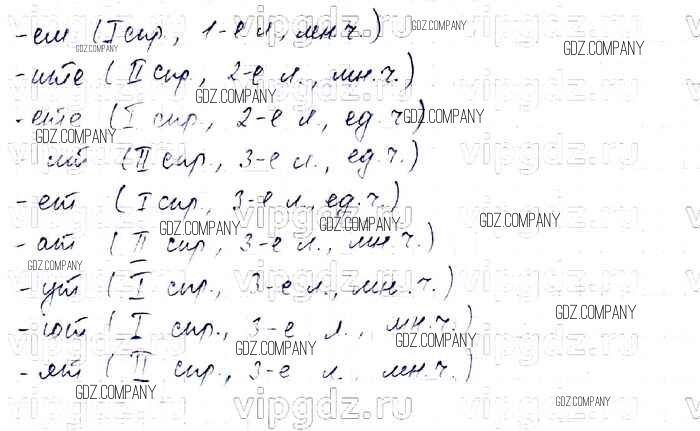 -ем (I спр., 1-е л., мн.ч.)
-ите (II спр., 2-е л., мн.ч.)
-ете (I спр., 2-е л., ед.ч.)
-ит (II спр., 3-е л., ед.ч.)
-ет (I спр., 3-е л., ед.ч.)
-ат (II спр., 3-е л., мн.ч.)
-ут (I спр., 3-е л., мн.ч.)
-ют (I спр., 3-е л., мн.ч.)
-ят (II спр., 3-е л., мн.ч.)